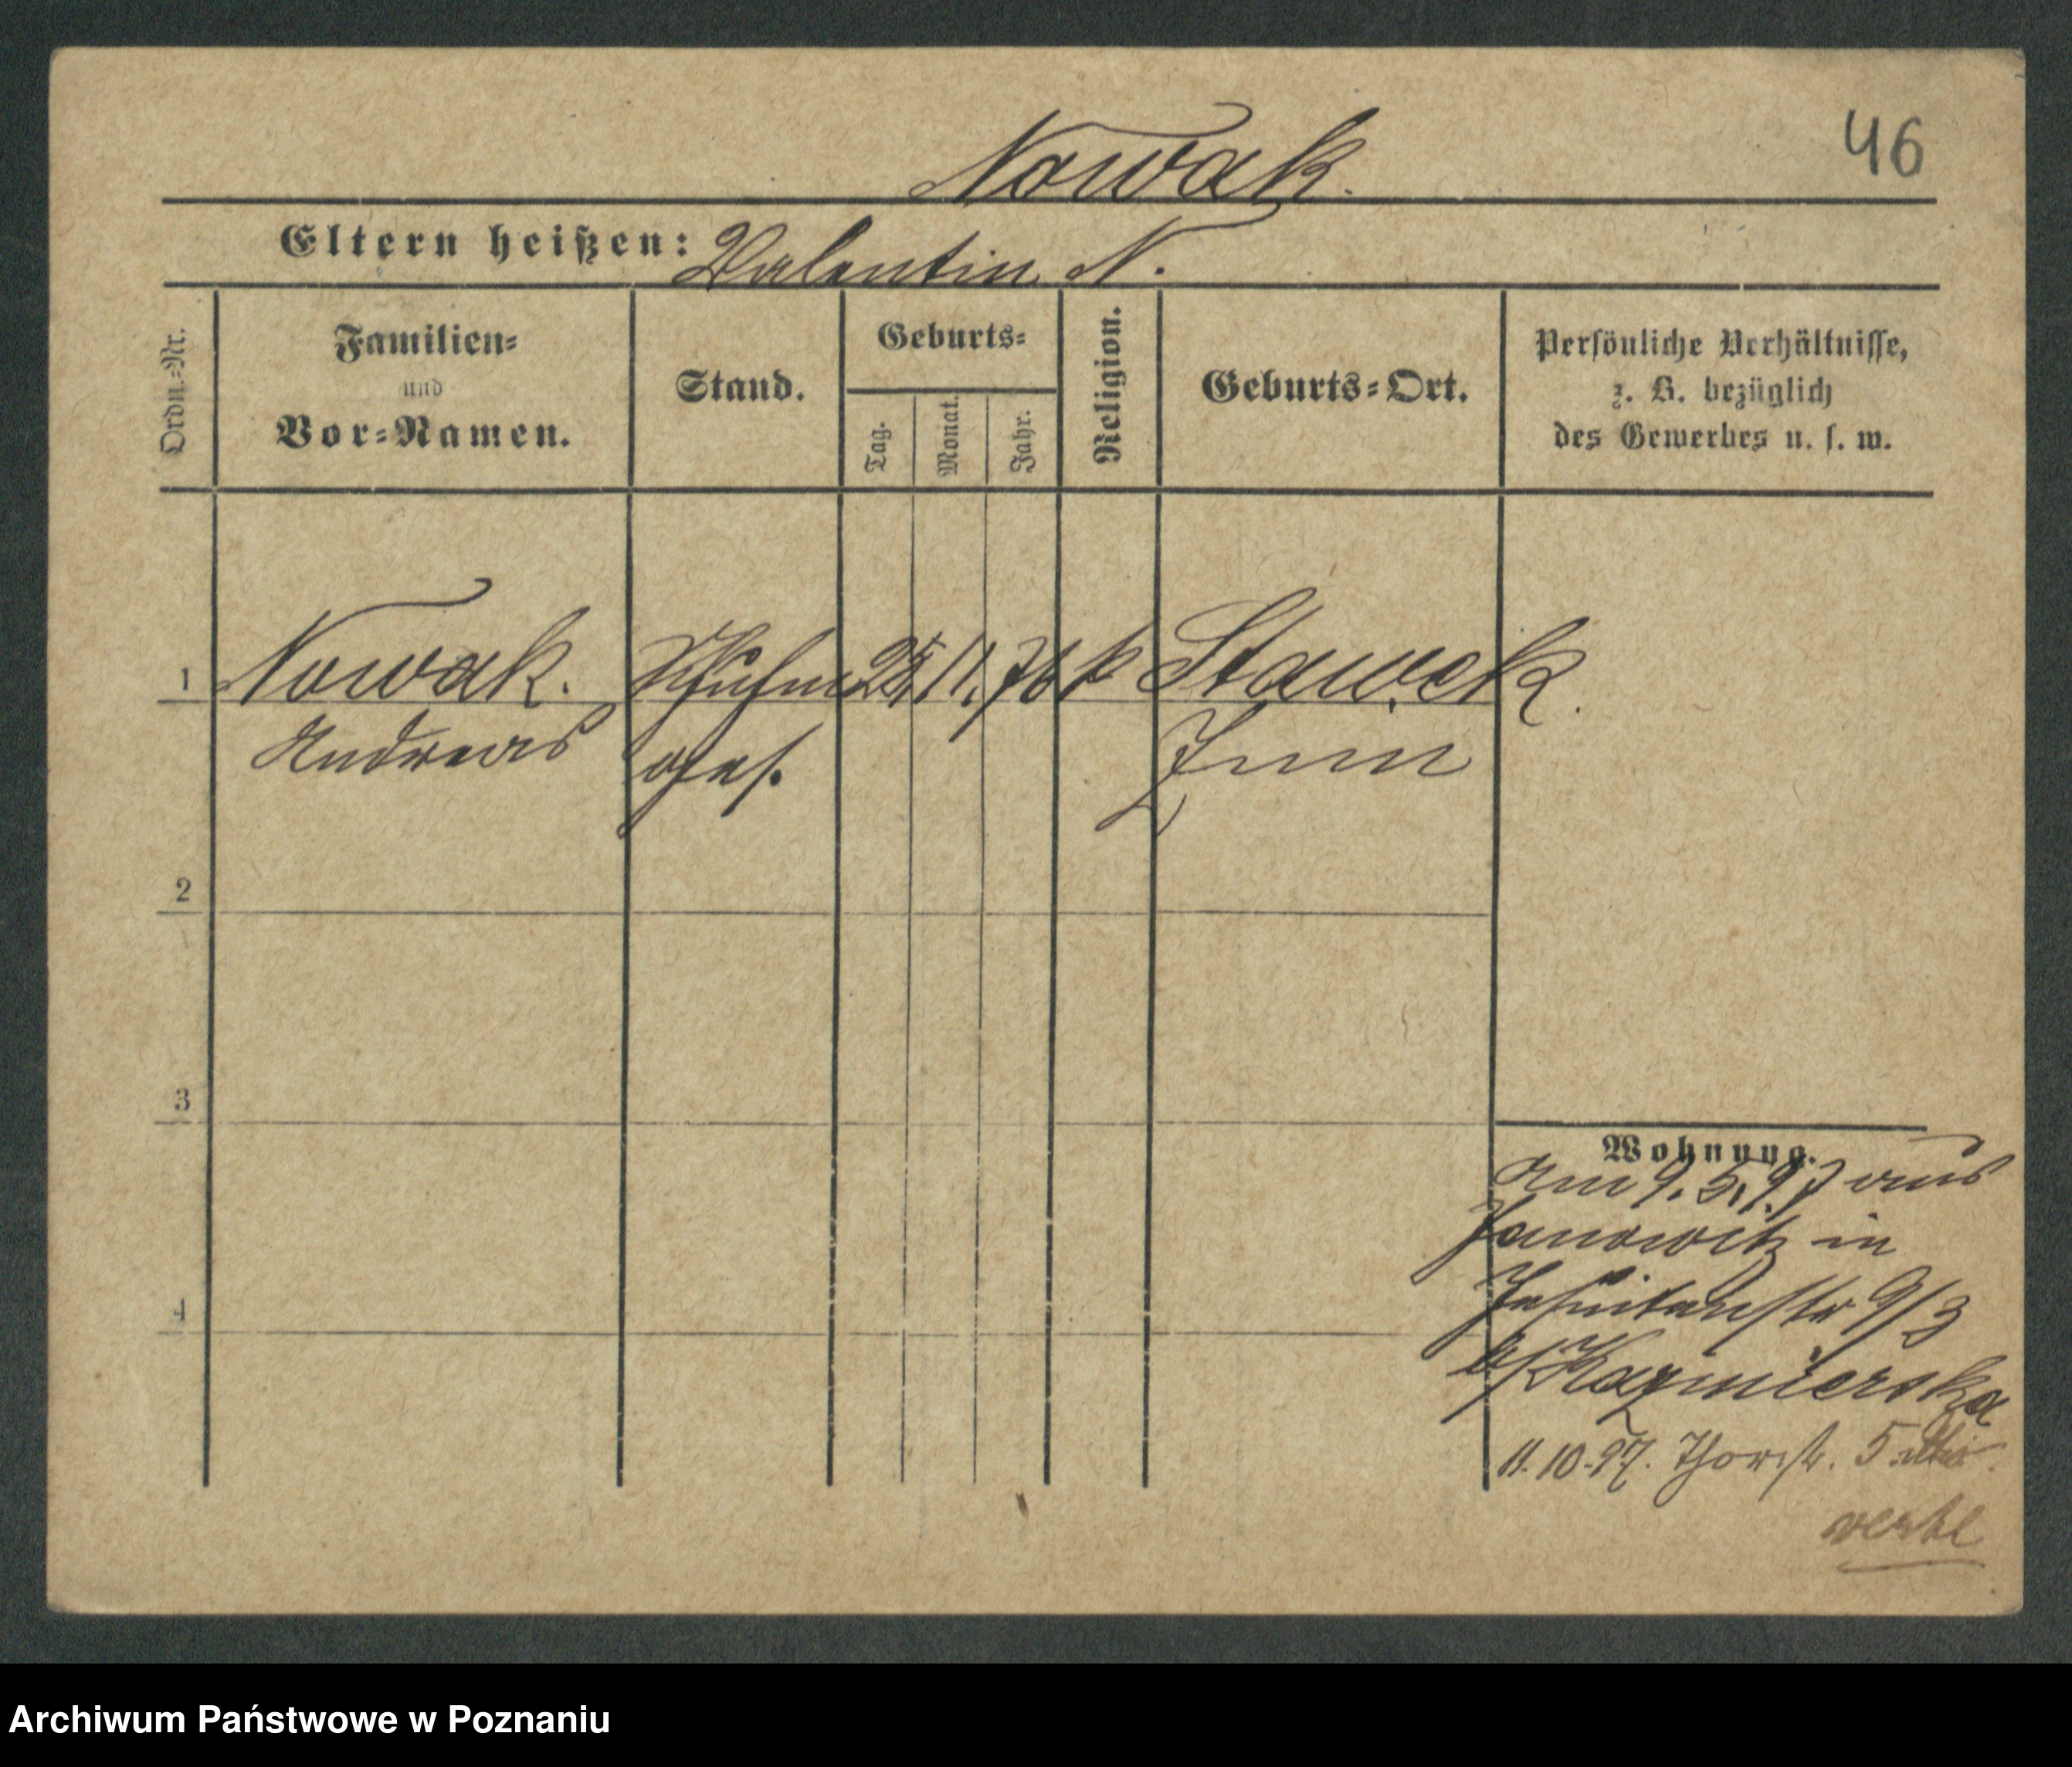 46
Nowak.
Eltern heißen: Valentin N.
Ordn.-Nr.
Familien- und Vor-Namen.
Stand.
Geburts-
Tag.
Monat.
Jahr.
Religion.
Geburts-Ort.
Persönliche Verhältnisse,
z. B. bezüglich
des Gewerbes u. s. w.
1 Nowak. Schuhm 25 11. 76 k Stawek.
Andreas ges. Znin
2
3
4
Wohnung.
Am 9.5.97 aus
Janowitz in
Jesuitenstr 9/3
b/Kazmierska
11.10.97. Thorstr. 5
Archiwum Państwowe w Poznaniu